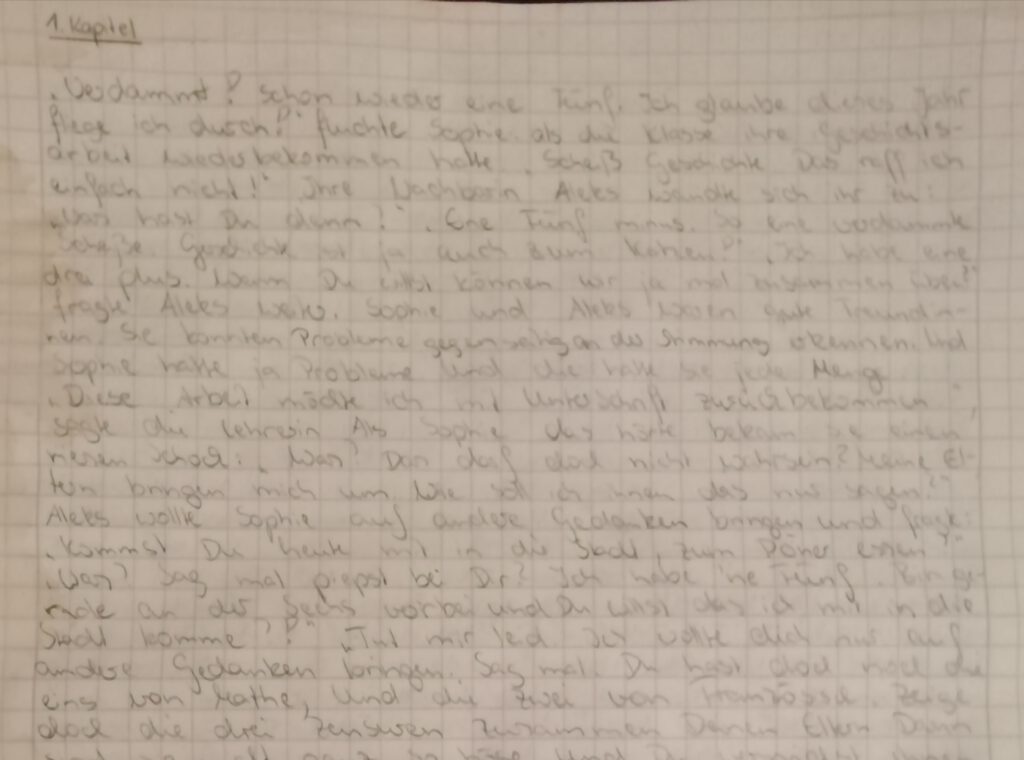 1. Kapitel
„Verdammt! Schon wieder eine Fünf. Ich glaube dieses Jahr
fliege ich durch!" fluchte Sophie als die Klasse ihre Geschichts-
arbeit wiederbekommen hatte. „Scheiß Geschichte. Das raff ich
einfach nicht!" Ihre Nachbarin Aleks wandte sich ihr zu:
„Was hast Du denn?" „Eine Fünf minus. So eine verdammte
Scheiße. Geschichte ist ja auch zum Kotzen!" „Ich habe eine
drei plus. Wenn Du willst können wir ja mal zusammen üben?"
fragte Aleks weiter. Sophie und Aleks waren gute Freundin-
nen. Sie konnten Probleme gegenseitig an der Stimmung erkennen. Und
Sophie hatte ja Probleme und die hatte sie jede Menge.
„Diese Arbeit möchte ich mit Unterschrift zurückbekommen",
sagte die Lehrerin. Als Sophie das hörte bekam sie einen
riesen Schock: „Was? Das darf doch nicht wahrsein? Meine El-
tern bringen mich um. Wie soll ich ihnen das nur sagen?"
Aleks wollte Sophie auf andere Gedanken bringen und fragte:
„Kommst Du heute mit in die Stadt, zum Döner essen?"
„Was? Sag mal piepst bei Dir? Ich habe 'ne Fünf. Bin ge-
rade an der Sechs vorbei und Du willst das ich mit in die
Stadt komme?" „Tut mir leid. Ich wollte dich nur auf
andere Gedanken bringen. Sag mal. Du hast doch noch die
eins von Mathe, und die zwei von Französisch. Zeige
doch die drei Zensuren zusammen Deinen Eltern. Dann